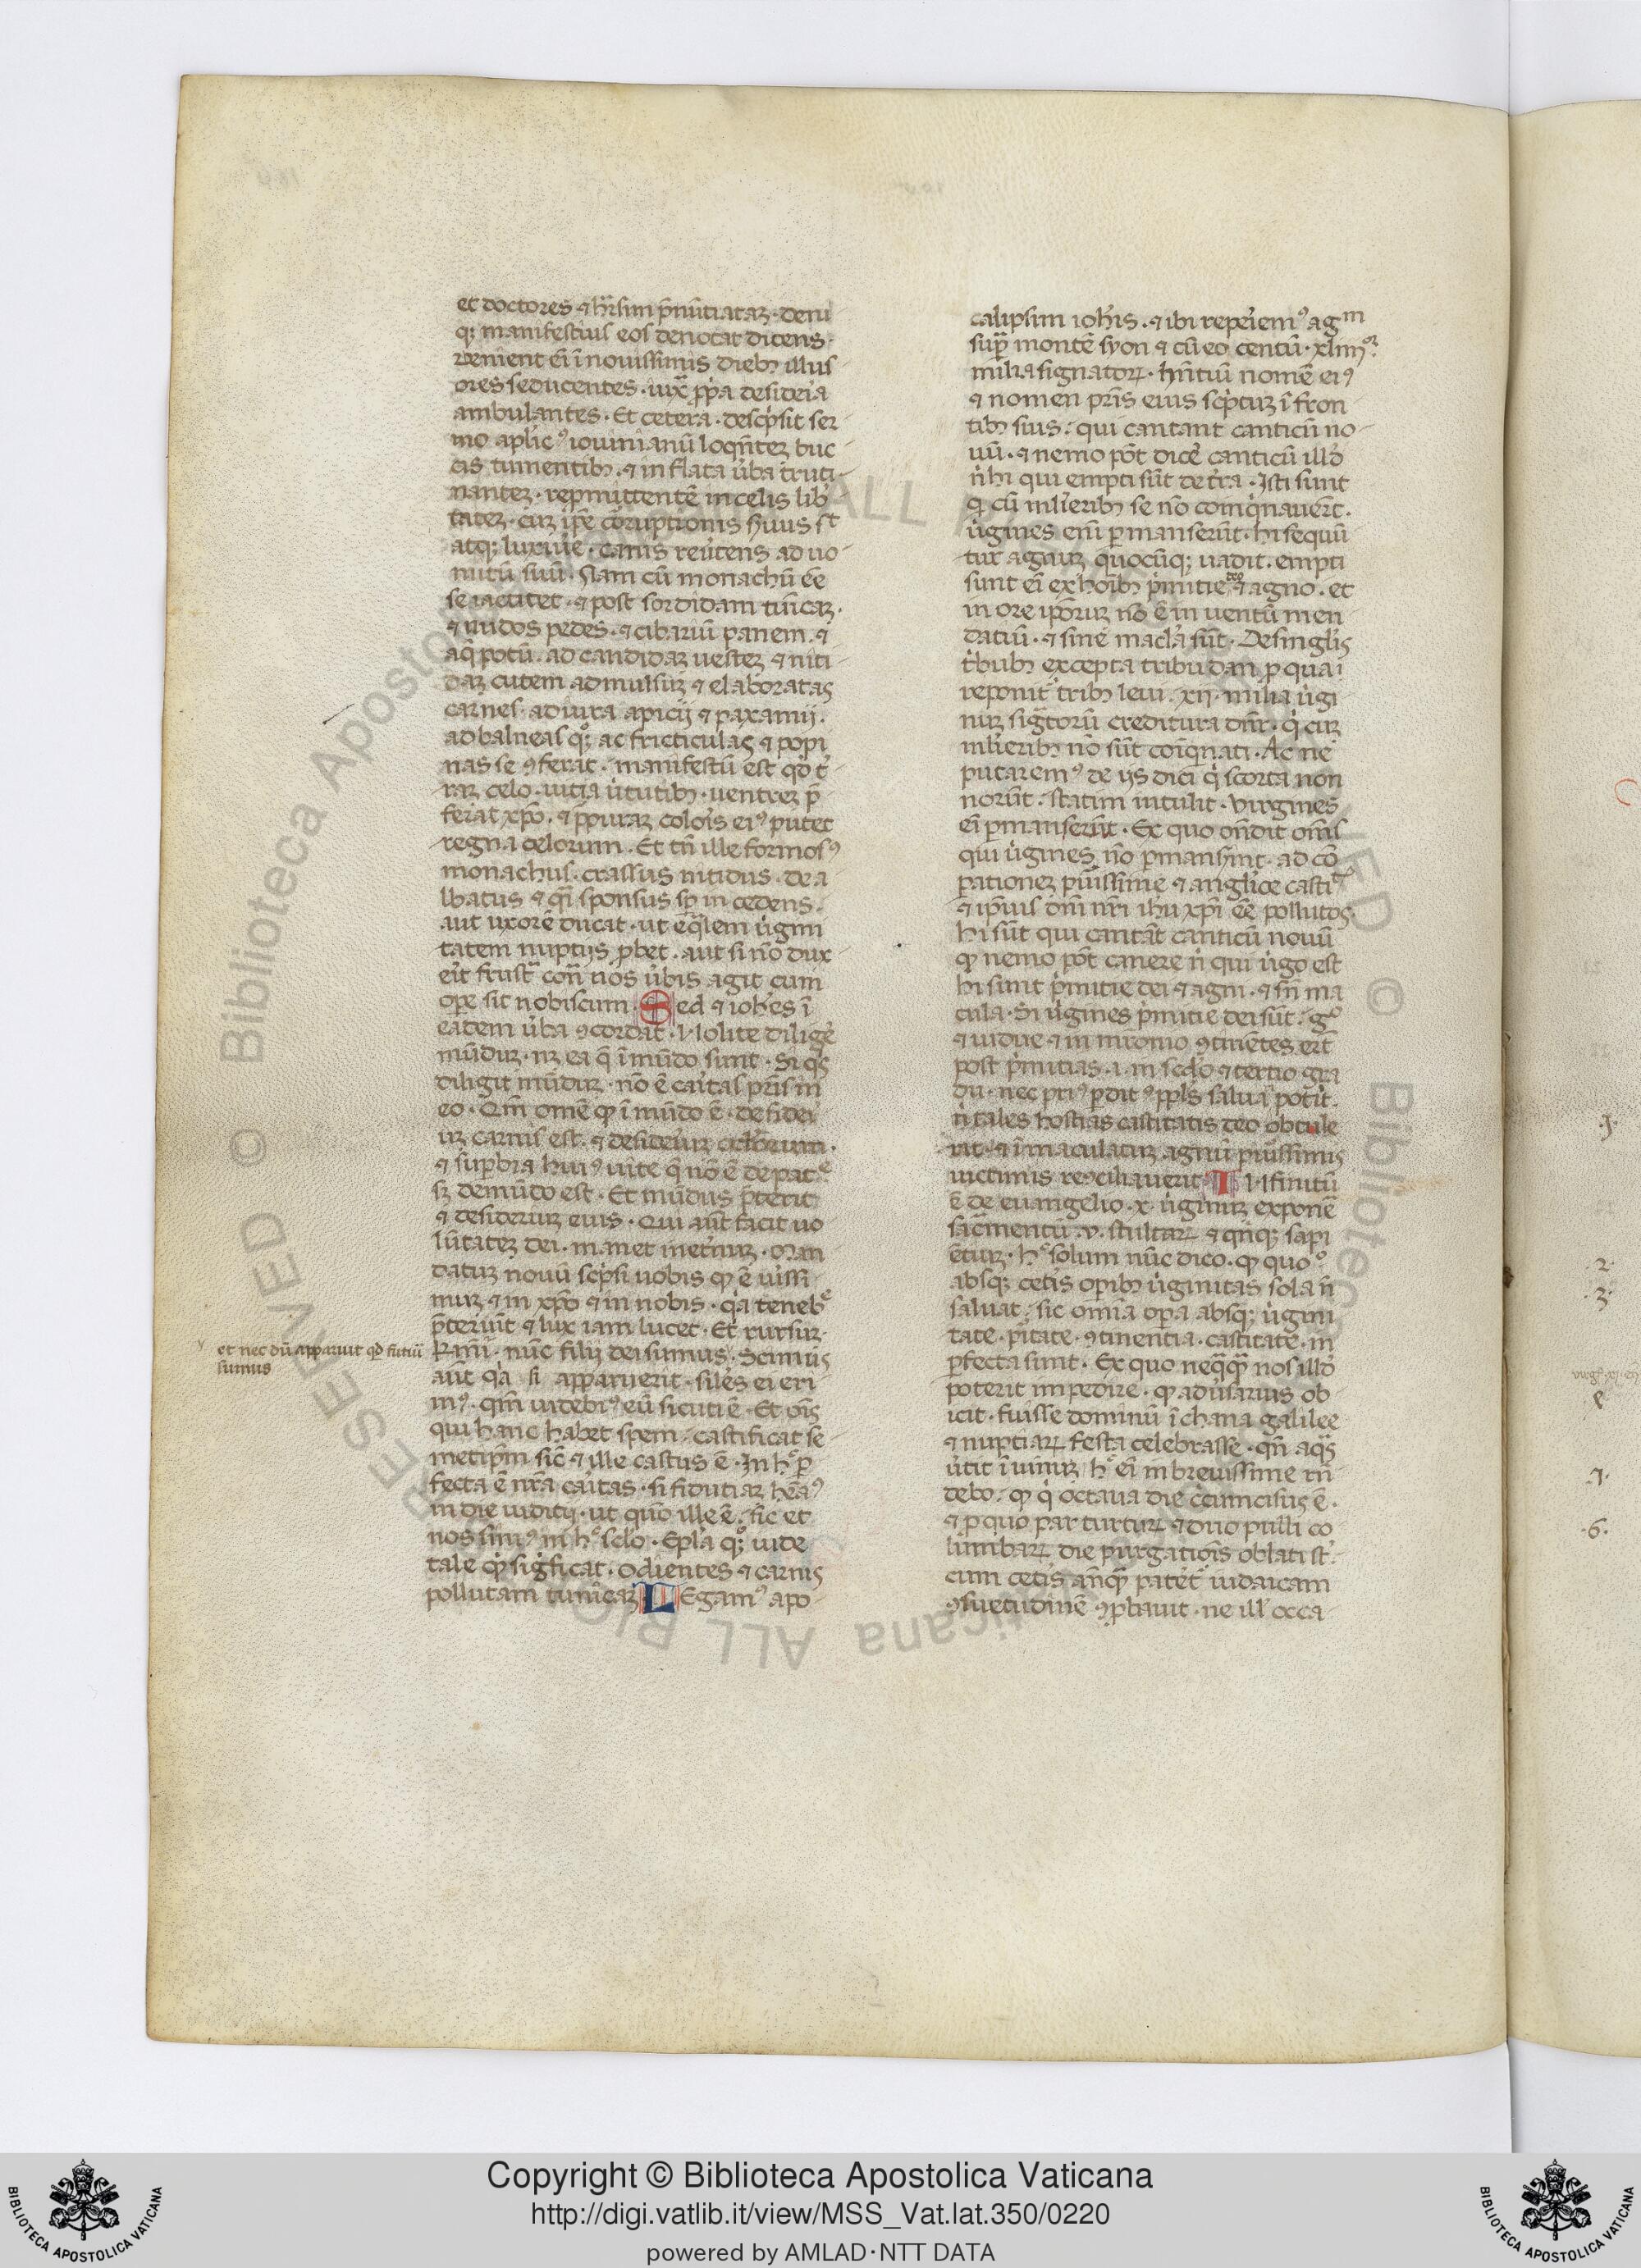 et doctores ⁊ hr̄sim p̄nūtiataꝫ · deni
qꝫ manifestius eos denotat dicens ·
venient ei̅ ī nouissimis diebꝫ illus
ores seducentes · iux̄ ꝓpͥa desideria
ambulantes · Et cetera · descͥpsit ser
mo apl̓icꝰ iouinianū loqn̄teꝫ buc
cis tumentibꝫ · ⁊ inflata ūba truti
nanteꝫ · repmittentē in celis lib̓
tateꝫ · cuꝫ ip̄e corruptionis
atqꝫ luxurie · canis reūtens ad uo
mitū suū · Nam cū monachū ēe
se iactitet · ⁊ post sordidam tunicaꝫ ·
⁊ nudos pedes · ⁊ cibariū panem · ⁊
aq̄ potū · ad candidaꝫ uesteꝫ ⁊ niti
daꝫ cutem ad mulsuꝫ ⁊ elaboratas
carnes · ad iura apicij ⁊ paxamij ·
ad balneas qꝫ ac fricticulas ⁊ popi
nas se ꝯferat · manifestū est qd̓ t̓
raꝫ celo · uitia ūtutibꝫ · uentreꝫ p̄
ferat xp̄o · ⁊ p̄puraꝫ colois eiꝰ putet
regna celorum · Et tn̄ ille formosꝰ
monachus · crassus nitidus · dea
lbatus ⁊ qͣi sponsus sp̄ incedens ·
aut uxorē ducat · ut eq̄lem ūgini
tatem nuptijs ꝓbet · aut si nō dux
eīt frustͣ conͣ nos ūbis agit cum
ope sit nobiscum · Sed ⁊ ioh̓es ī
eadem ūba ꝯcordat · Nolite diliḡe
mūduꝫ · nꝫ ea q̄ ī mūdo sunt · Si qͥs
diligit mūduꝫ · nō ē caͥtas pr̄is in
eo · Qm̄ omē qꝫ ī mūdo ē · desideī
uꝫ carnis est · ⁊ desideriuꝫ oculorum ·
⁊ supbia huiꝰ uite q̄ nō ē de patͤ
sꝫ de mūdo est · Et mūdus p̄terit
⁊ desideriuꝫ eius · Qui aūt facit uo
lūtateꝫ dei · manet inet̓nuꝫ · Man
datuꝫ nouū scͥpsi uobis qꝫ ē uīssi
muꝫ ⁊ in xp̄o ⁊ in nobis · qͥa tenebͤ
p̄terīūt ⁊ lux iam lucet · Et rursuꝫ ·
Kr̄mi · nūc filij dei sumus · Scimus
et nec dū apparuit qd̓ futūi
sumus
aūt qͥa si apparuerit · siles ei eri
mꝰ · qm̄ uidebiꝰ eū sicuti ē · Et oīs
qui hanc habet spem · castificat se
metip̄m sic̄ ⁊ ille castus ē · In hͦ p
fecta ē nr̄a caͥtas · si fidutiaꝫ hēaꝰ
in die iuditij · ut quō ille ē · sic et
nos simꝰ in hͦ sc̄lo · Epl̓a qꝫ iude
tale qͥd sigͥficat · Odientes ⁊ carnis
pollutam tunicaꝫ LEgamꝰ apo
calipsim ioh̓is · ⁊ ibi repeīemꝰ agᵐ
suꝑ montē syon ⁊ cū eo centū · xliiijᵒʳ
milia signatoꝝ · hn̄tiū nomē eiꝰ
⁊ nomen pr̄is eius scͥptuꝫ ī fron
tibꝫ suis · qui cantant canticū no
uū · ⁊ nemo pōt dic̓e canticū illd̓
ṅ hi qui empti sūt de t̓ra · Isti sunt
qͥ cū mul̓ieribꝫ se nō coinqͥnauerūt ·
ūgines enī pmanserūt · hi sequū
tur agnuꝫ quocūqꝫ uadit · empti
sunt eī ex hoībꝫ pͥmitie deo ⁊ agno · et
in ore ipsoruꝫ nō ē inuentū men
datiū · ⁊ sine macl̓a sūt · De singl̓is
tͥbubꝫ excepta tribu dan p qua ī
reponit̄ tribꝫ leui · xij · milia ūgi
nuꝫ sigͣtorū creditura dn̄r · qͥ cuꝫ
mul̓ieribꝫ nō sūt coīqnati · Ac ne
putaremꝰ de ijs dici qͥ scorta non
norūt · statim intulit · Virgines
eī pmanserūt · Ex quo on̄dit om̄s
qui ūgines nō pmanserint · ad cō
pationeꝫ pūissime ⁊ anglice castiᵗⁱˢ
⁊ ip̄ius dn̄i nr̄i ihu xp̄i ēe pollutos ·
hi sūt qui cantāt canticū nouū
qꝫ nemo pōt canere ṅ qui ūgo est
hi sunt pͥmitie dei ⁊ agni · ⁊ sn̄ ma
cula · Si ūgines pͥmitie dei sūt · gͦ
⁊ uidue ⁊ in mr̄onio ꝯtinētes erūt
post pͥmitias · i · in secd̓o ⁊ tertio gra
du · nec pͥꝰ pditꝰ ppl̓s saluaī potīt ·
ṅ tales hostias castitatis deo obtule
rit · ⁊ īmaculatuꝫ agnū pūissimis
uictimis reꝯciliauerit · INfinitū
ē de euangelio · x · ūginuꝫ exponē
sac̄mentū · v · stultaꝝ ⁊ qn̄qꝫ sapi
ētuꝫ · hͦ solum nūc dico · qꝫ quoͦ
absqꝫ cetīs opibꝫ ūginitas sola ṅ
saluat · sic omīa opa absqꝫ ūgini
tate · pītate · ꝯtinentia · castitate · in
pfecta sunt · Ex quo neqͣqͣꝫ nos illd̓
poterit impedire · qꝫ adūsarius ob
icit · fuisse dominū ī chana galilee
⁊ nuptiaꝝ festa celebrasse · qn̄ aqͣs
ūtit ī uinuꝫ · hͦ eī in breuissime rn̄
debo · qꝫ qͥ octaua die c̓cumcisus ē ·
⁊ p quo par turtuꝝ ⁊ duo pulli co
lumbaꝝ die purgatiōis oblati sūt ·
cum cetīs an̄qꝫ pat̓et̄ iudaicam
ꝯsuetudinē ꝯprobauit · ne ill̓ occa
Copyright © Biblioteca Apostolica Vaticana
http://digi.vatlib.it/view/MSS_Vat.lat.350/0220
powered by AMLAD·NTT DATA